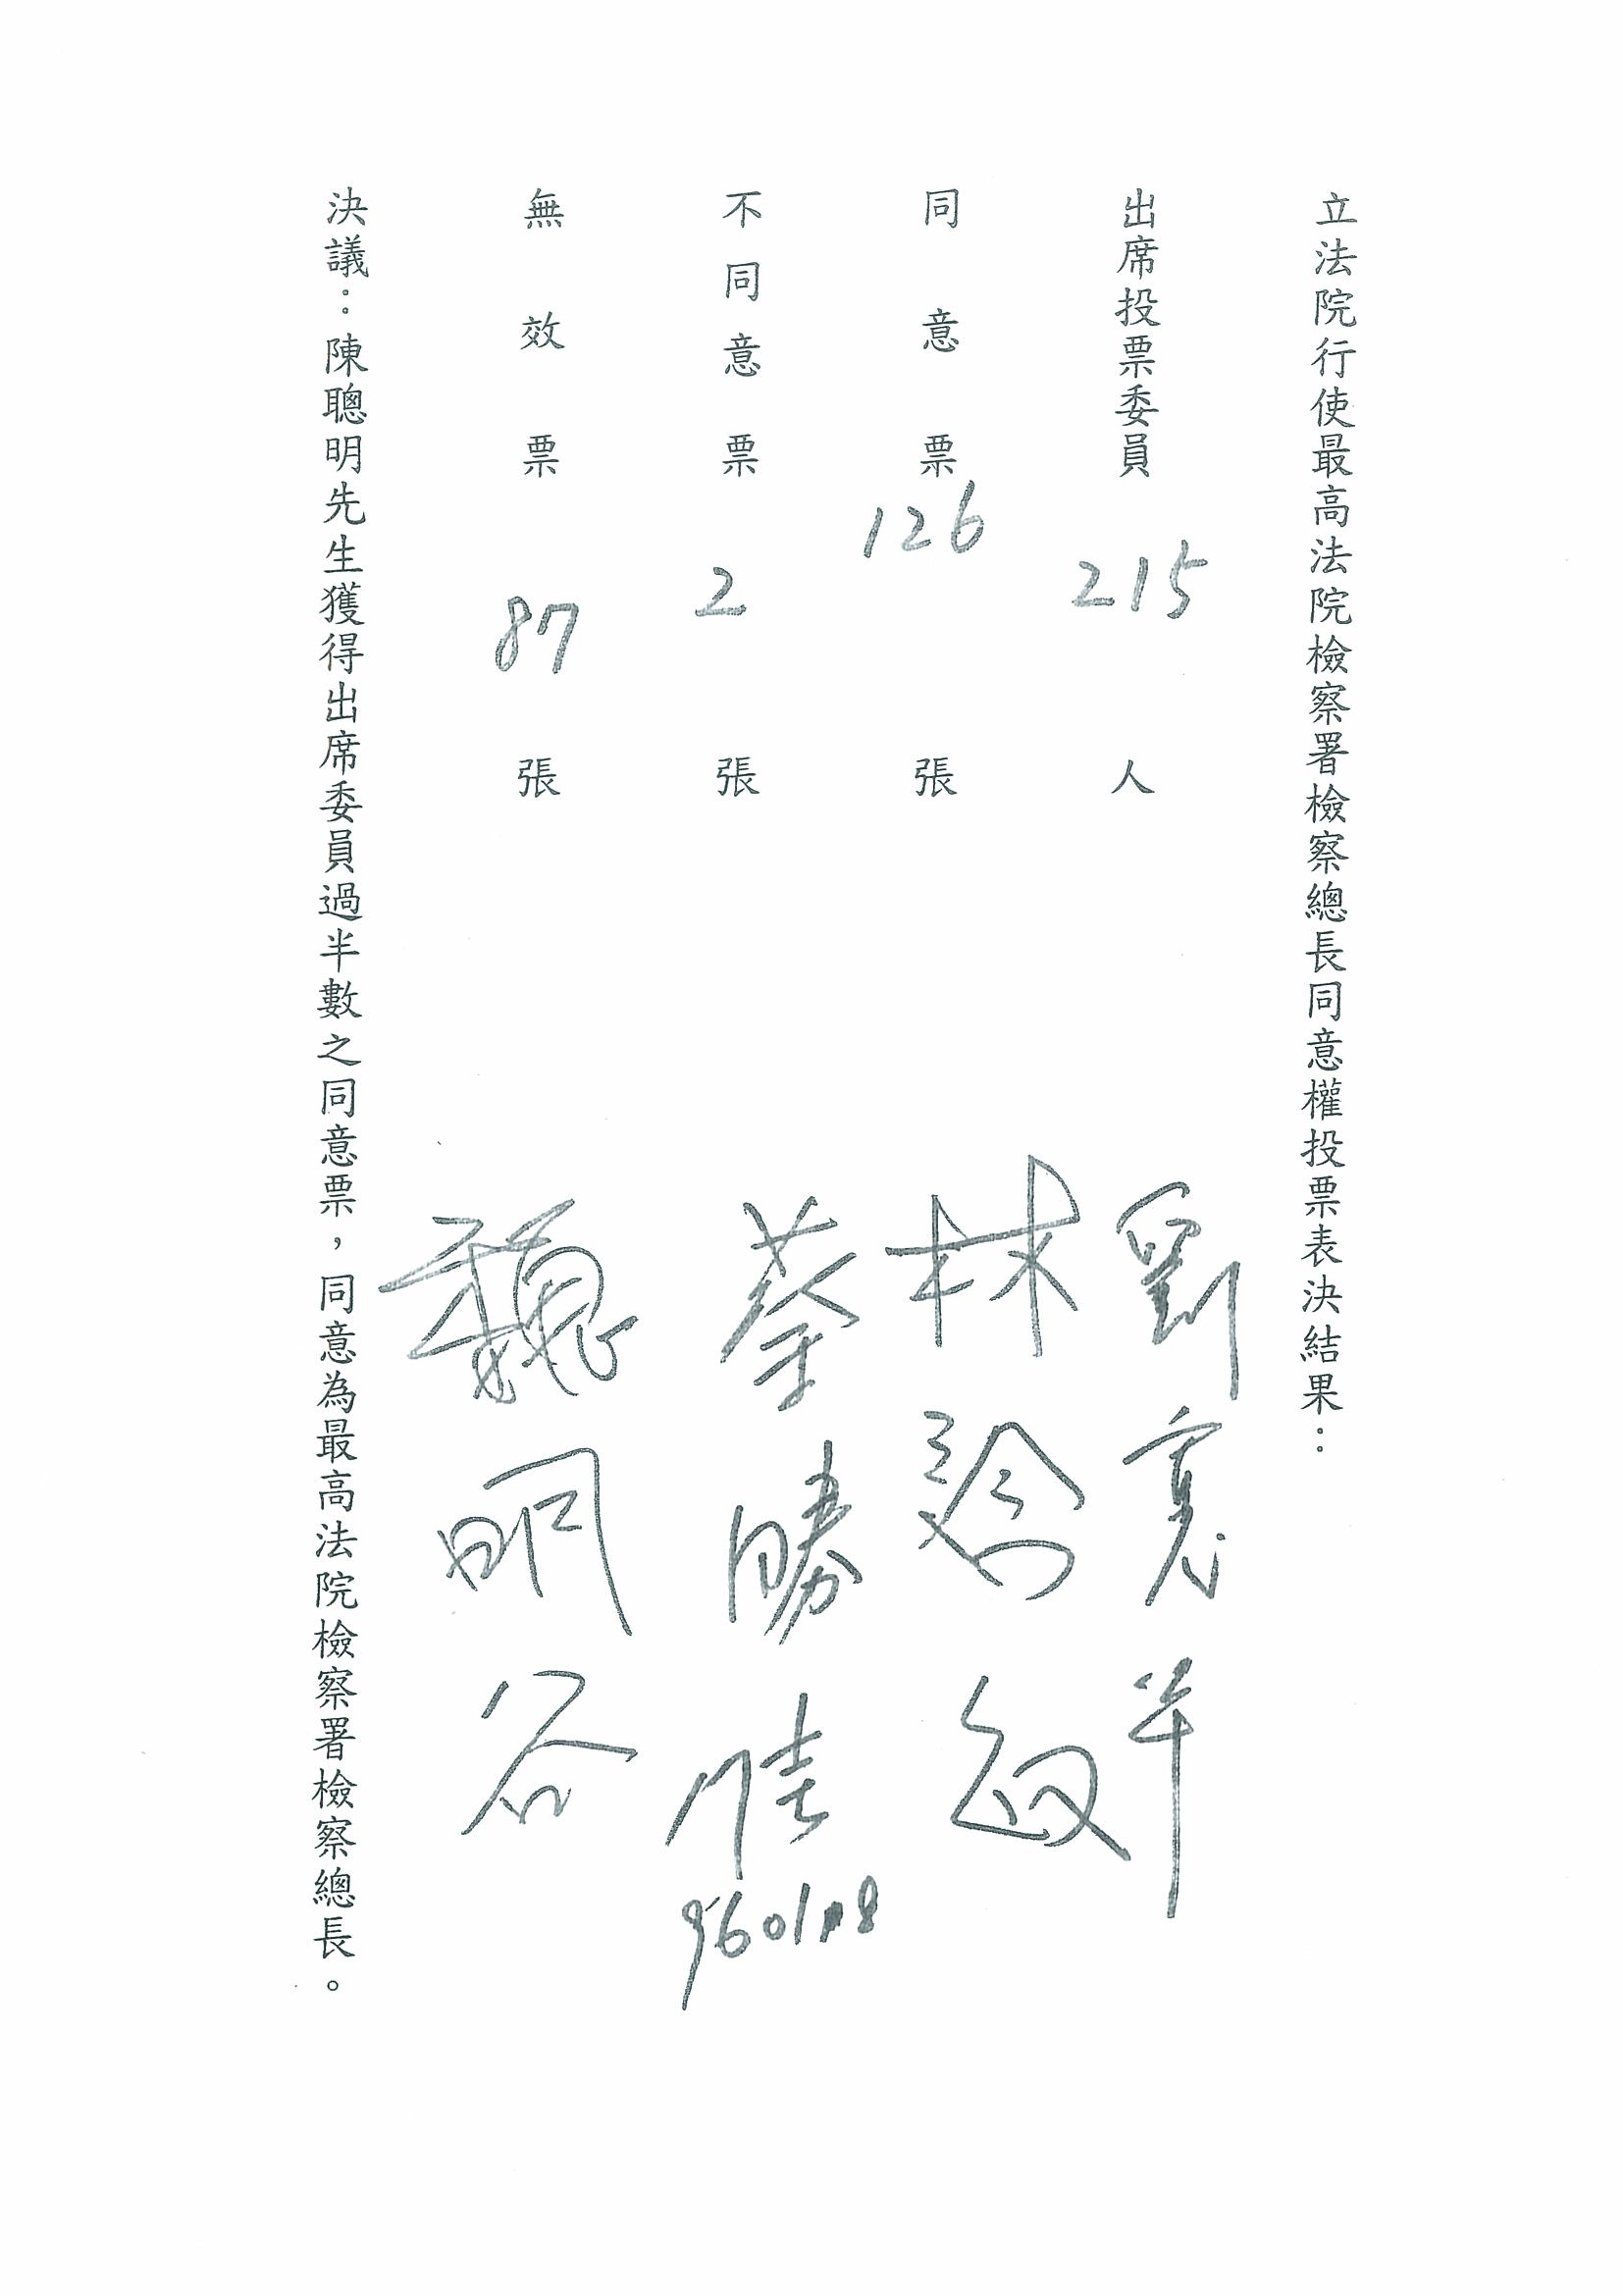 立法院行使最高法院檢察署檢察總長同意權投票表決結果：
出席投票委員 215 人
同意票 126 張
不同意票 2 張
無效票 87 張
決議：陳聰明先生獲得出席委員過半數之同意票，同意為最高法院檢察署檢察總長。
劉寬平
林
蔡勝佳
魏明谷